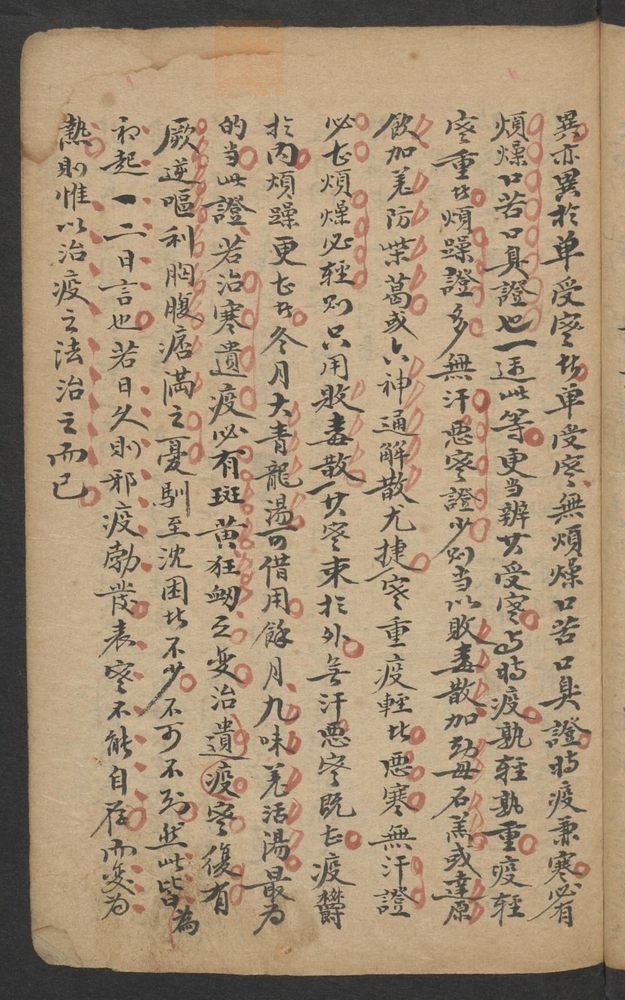 異亦異於单受寒者单受寒無煩燥口苦口臭證時疫兼寒必有
煩燥口苦口臭證也一遇此等更当辨其受寒与時疫孰轻孰重疫轻
寒重者煩躁證多無汗悪寒證少則当以敗毒散加知母石羔或達原
飲加羌防柴葛或六神通解散尤捷寒重疫輕者悪寒無汗證
必甚煩燥必轻則只用敗毒散一其寒束於外無汗悪寒既甚疫欝
於内煩躁更甚者冬月大青龍湯可借用餘月九味羌活湯最为
的当此證若治寒遺疫必有斑黄狂衂之变治遺疫寒復有
厥逆嘔利胸腹痞满之憂馴至沈困者不少不可不别然此皆為
初起一二日言也若日久則邪疫勃發表寒不能自存而变为
熱則惟以治疫之法治之而已